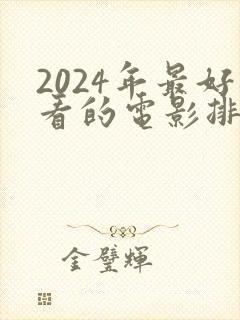 2024年最好
看的電影排
金璧輝